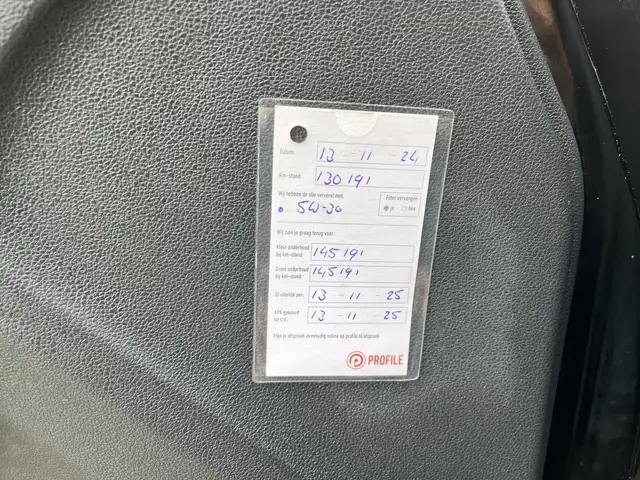 Datum: 13 - 11 - 24
Km-stand: 130191
Wij hebben de olie ververst met:
5W-30
Filter vervangen
ja nee
Wij zien je graag terug voor:
Klein onderhoud bij km-stand: 145191
Groot onderhoud bij km-stand: 145191
Of uiterlijk per: 13 - 11 - 25
APK gekeurd 13 - 11 - 25
Plan je afspraak eenvoudig online op profile.nl/afspraak
PROFILE